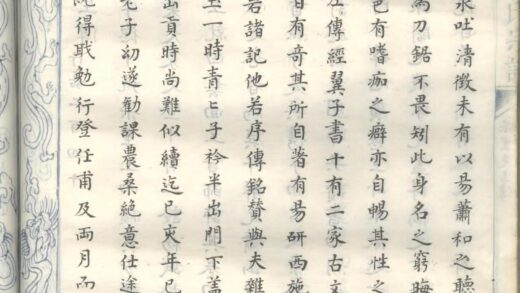 永吐清徵未有以易蕭和之聽
為刀鋸不畏矧此身名之窮晦
有嗜痂之癖亦自暢其性之
左傳經翼子書十有二家古文
有奇其所自著有易研西施
若諸記他若序傳銘贊與夫雜
至一時青〻子衿半出門下蓋
出貢時尚難似續迄己亥年已
老子幼遂勸課農桑絕意仕途
得聀勉行登任甫及両月而